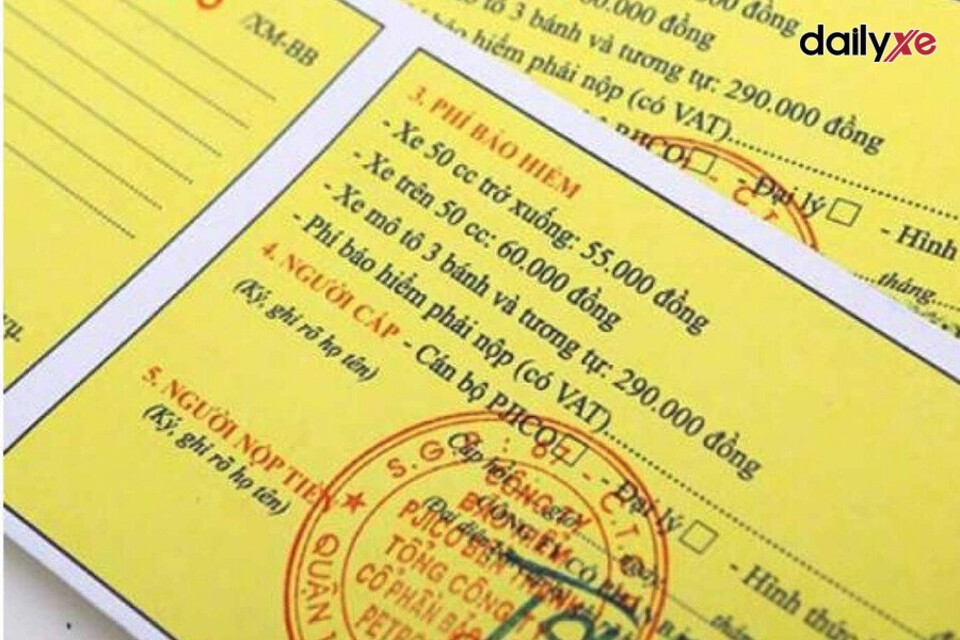 dailyxe
/XM-BB
đồng
mô tô 3 bánh và tương tự: 290.000 đồng
bảo hiểm phải nộp (có VAT)
PJICO □ - Đại lý □ - Hình
tháng
3. PHÍ BẢO HIỂM
- Xe 50 cc trở xuống: 55.000 đồng
- Xe trên 50 cc: 60.000 đồng
- Xe mô tô 3 bánh và tương tự: 290.000 đồng
- Phí bảo hiểm phải nộp (có VAT)
4. NGƯỜI CẤP - Cán bộ PJICO □ - Đại lý □ - Hình thức
(Ký, ghi rõ họ tên)
Cấp hồi giờ
tháng
5. NGƯỜI NỘP TIỀN
(Ký, ghi rõ họ tên)
CÔNG TY
BẢO HIỂM
PJICO BẾN THÀNH
TỔNG CÔNG TY
CỔ PHẦN BẢO
PETRO
QUẬN 1